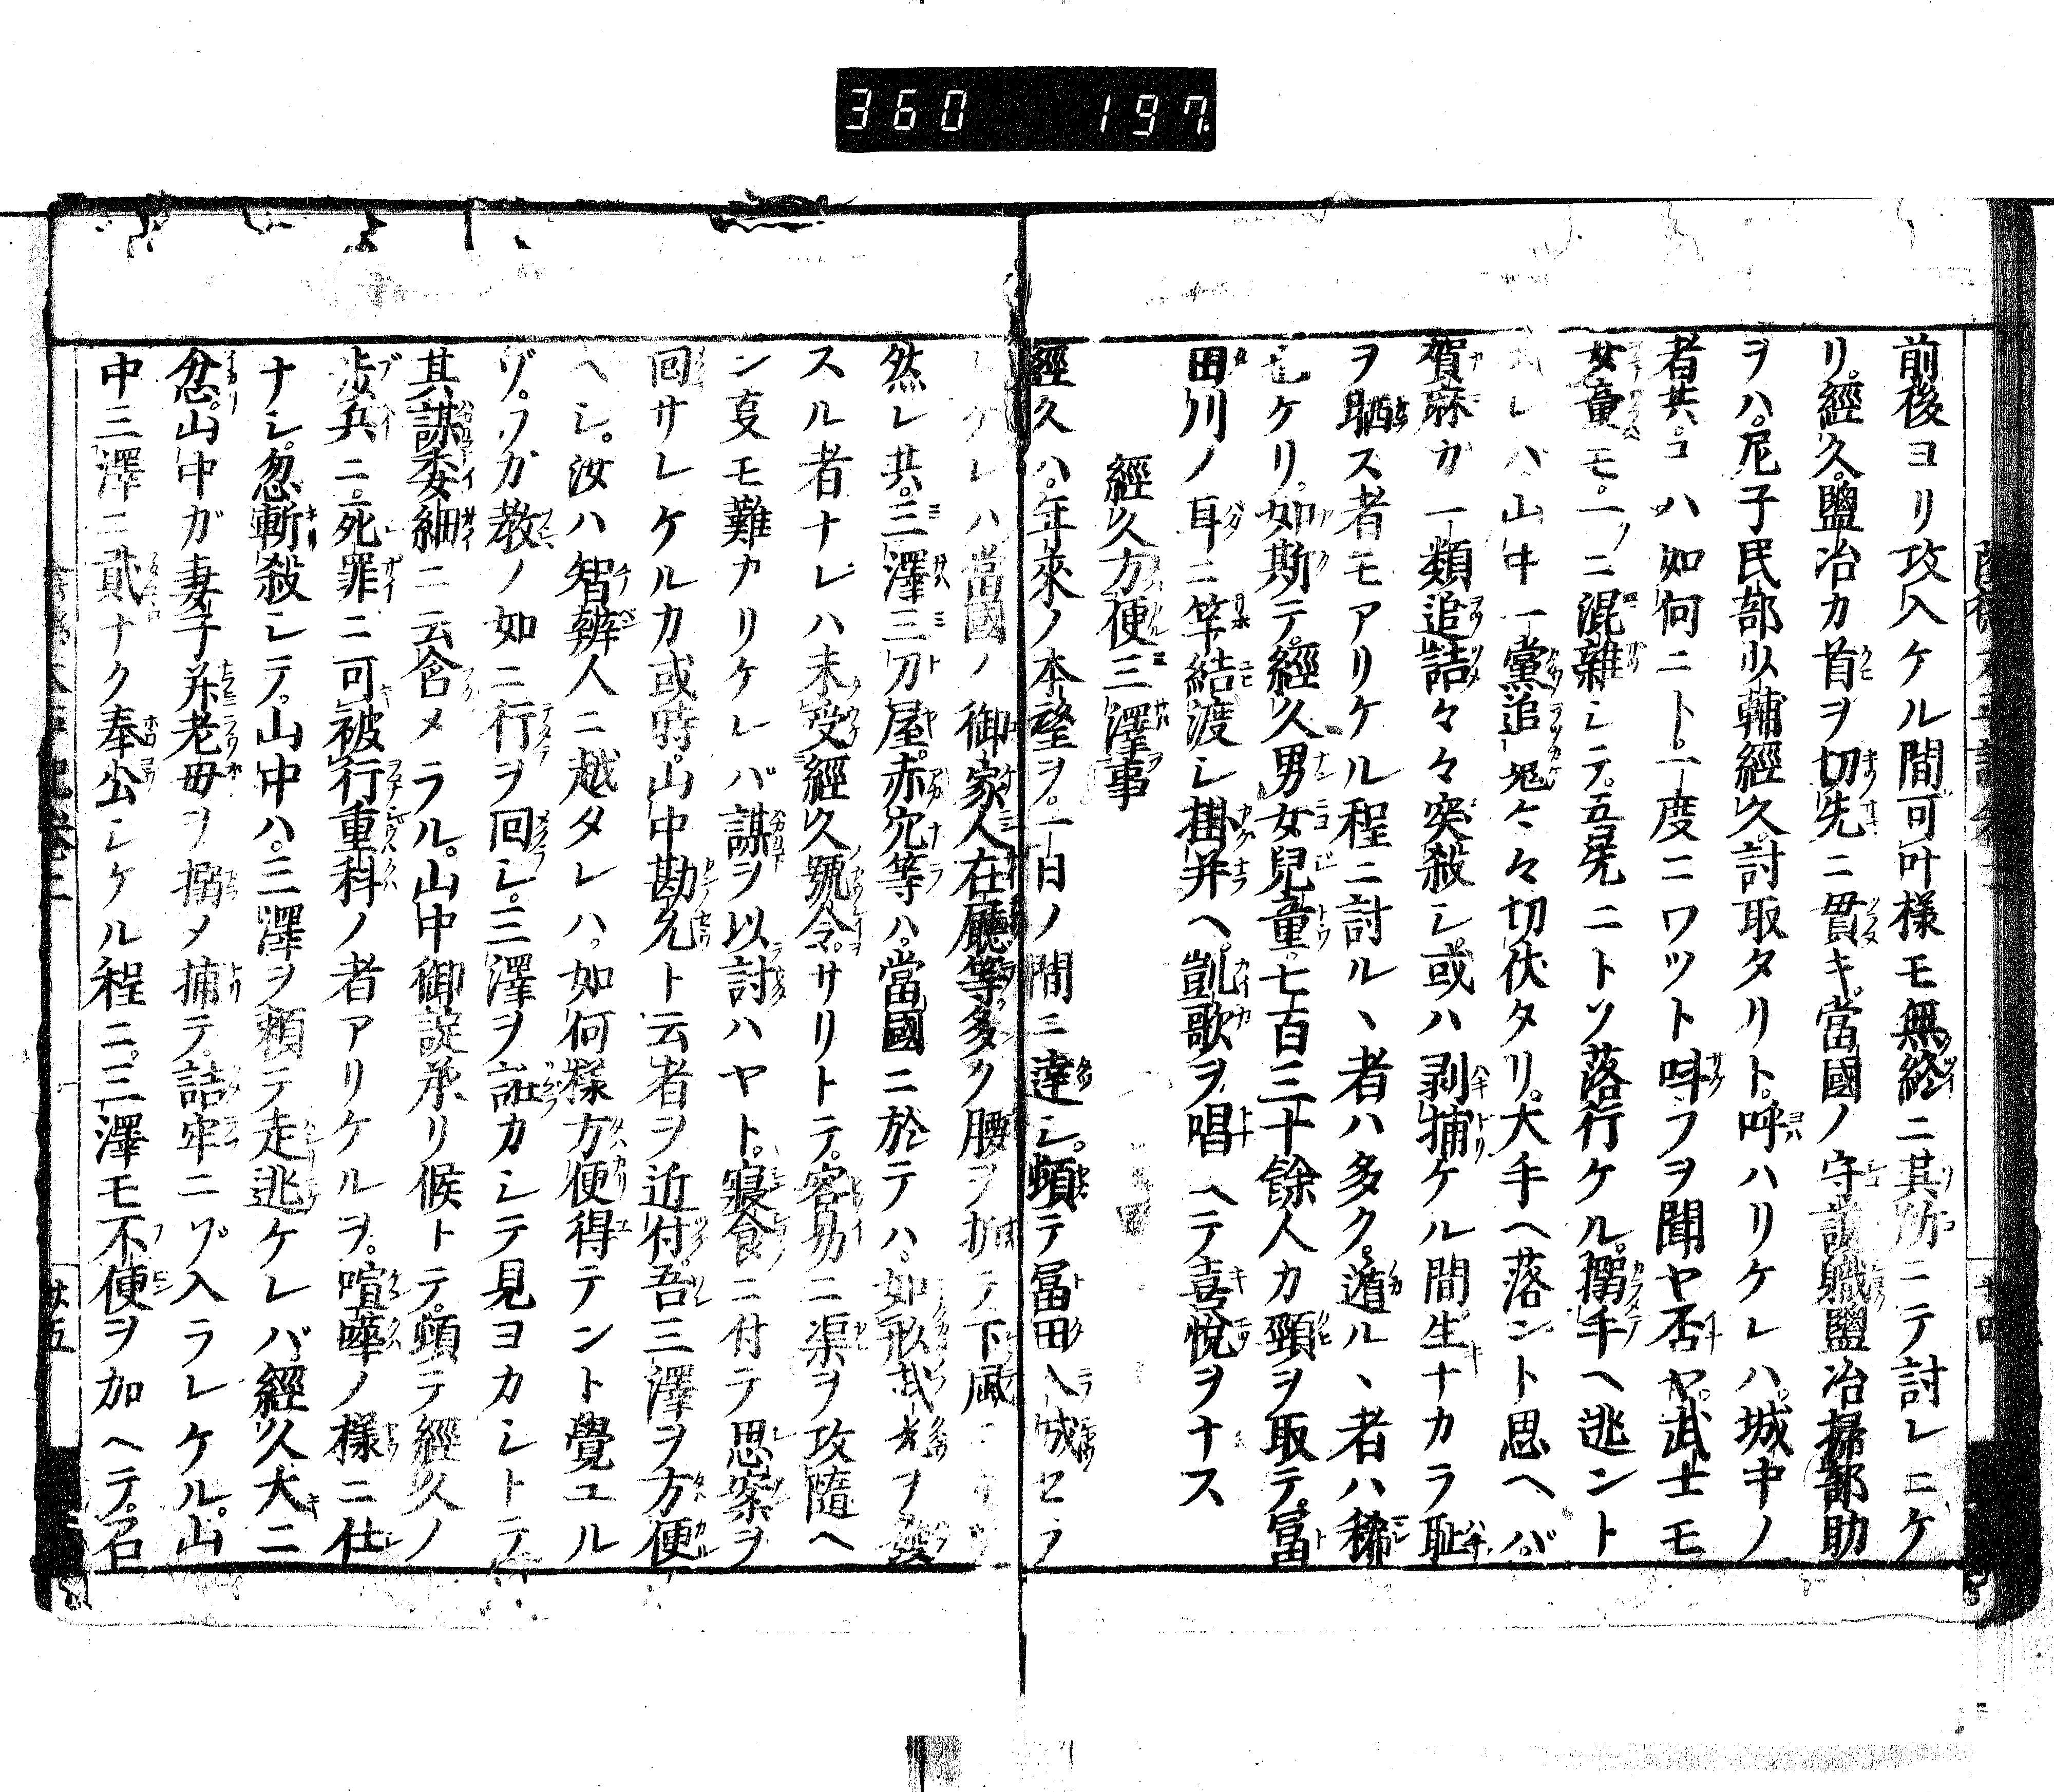 360 197
前後ヨリ攻入ケル間可叶様モ無終ニ其所ニテ討レニケ
リ。經久。鹽冶カ首ヲ切先ニ貫キ。當國ノ守護職鹽冶掃部助
ヲハ。尼子民部少輔經久討取タリト。呼ハリケレハ。城中ノ
者共。コハ如何ニト。一度ニワツト呌フヲ聞ヤ否ヤ。武士モ
女童モ。一ツニ混雜シテ。五尺ニトツ落行ケル。搦手ヘ逃ント
スレハ山中一黨追懸々々切伏タリ。大手ヘ落ント思ヘバ
賀麻カ一類追詰々々突殺シ。或ハ剥捕ケル間。生ナカラ耻
ヲ晒ス者モアリケル程ニ討ル、者ハ多ク。遁ル、者ハ稀
也ケリ。如斯テ。經久男女兒童。七百三十餘人カ頸ヲ取テ。冨
田川ノ耳ニ竿結渡シ掛并ヘ。凱歌ヲ唱ヘテ喜悅ヲナス
經久方便三澤事
經久ハ。年來ノ本望ヲ。一日ノ間ニ達シ。頓テ冨田ヘ入城セラ
レケレハ當國ノ御家人在廳等。多ク腰ヲ折テ下風ニ
然レ共。三澤三刀屋。赤穴等ハ。當國ニ於テハ。如形武者ヲ發
スル者ナレハ未受經久號令。サリトテ。容易ニ渠ヲ攻隨ヘ
ン叓モ難カリケレバ謀ヲ以討ハヤト。寢食ニ付テ思案ヲ
回サレケルカ或時。山中勘允ト云者ヲ近付。吾三澤ヲ方便
ヘシ。汝ハ智辨人ニ越タレハ。如何樣方便得テント覺ユル
ゾ。ワカ教ノ如ニ行ヲ回シ。三澤ヲ誑カシテ見ヨカシトテ
其謀委細ニ云含メラル。山中御諚承リ候トテ。頓テ經久ノ
歩兵ニ。死罪ニ可被行重科ノ者アリケルヲ。喧嘩ノ様ニ仕
ナシ。忽斬殺シテ。山中ハ。三澤ヲ頼テ走逃ケレバ。經久大ニ
忿。山中ガ妻子并老母ヲ搦メ捕テ。詰牢ニゾ入ラレケル。山
中三澤ニ貳ナク奉公シケル程ニ。三澤モ不便ヲ加ヘテ。召